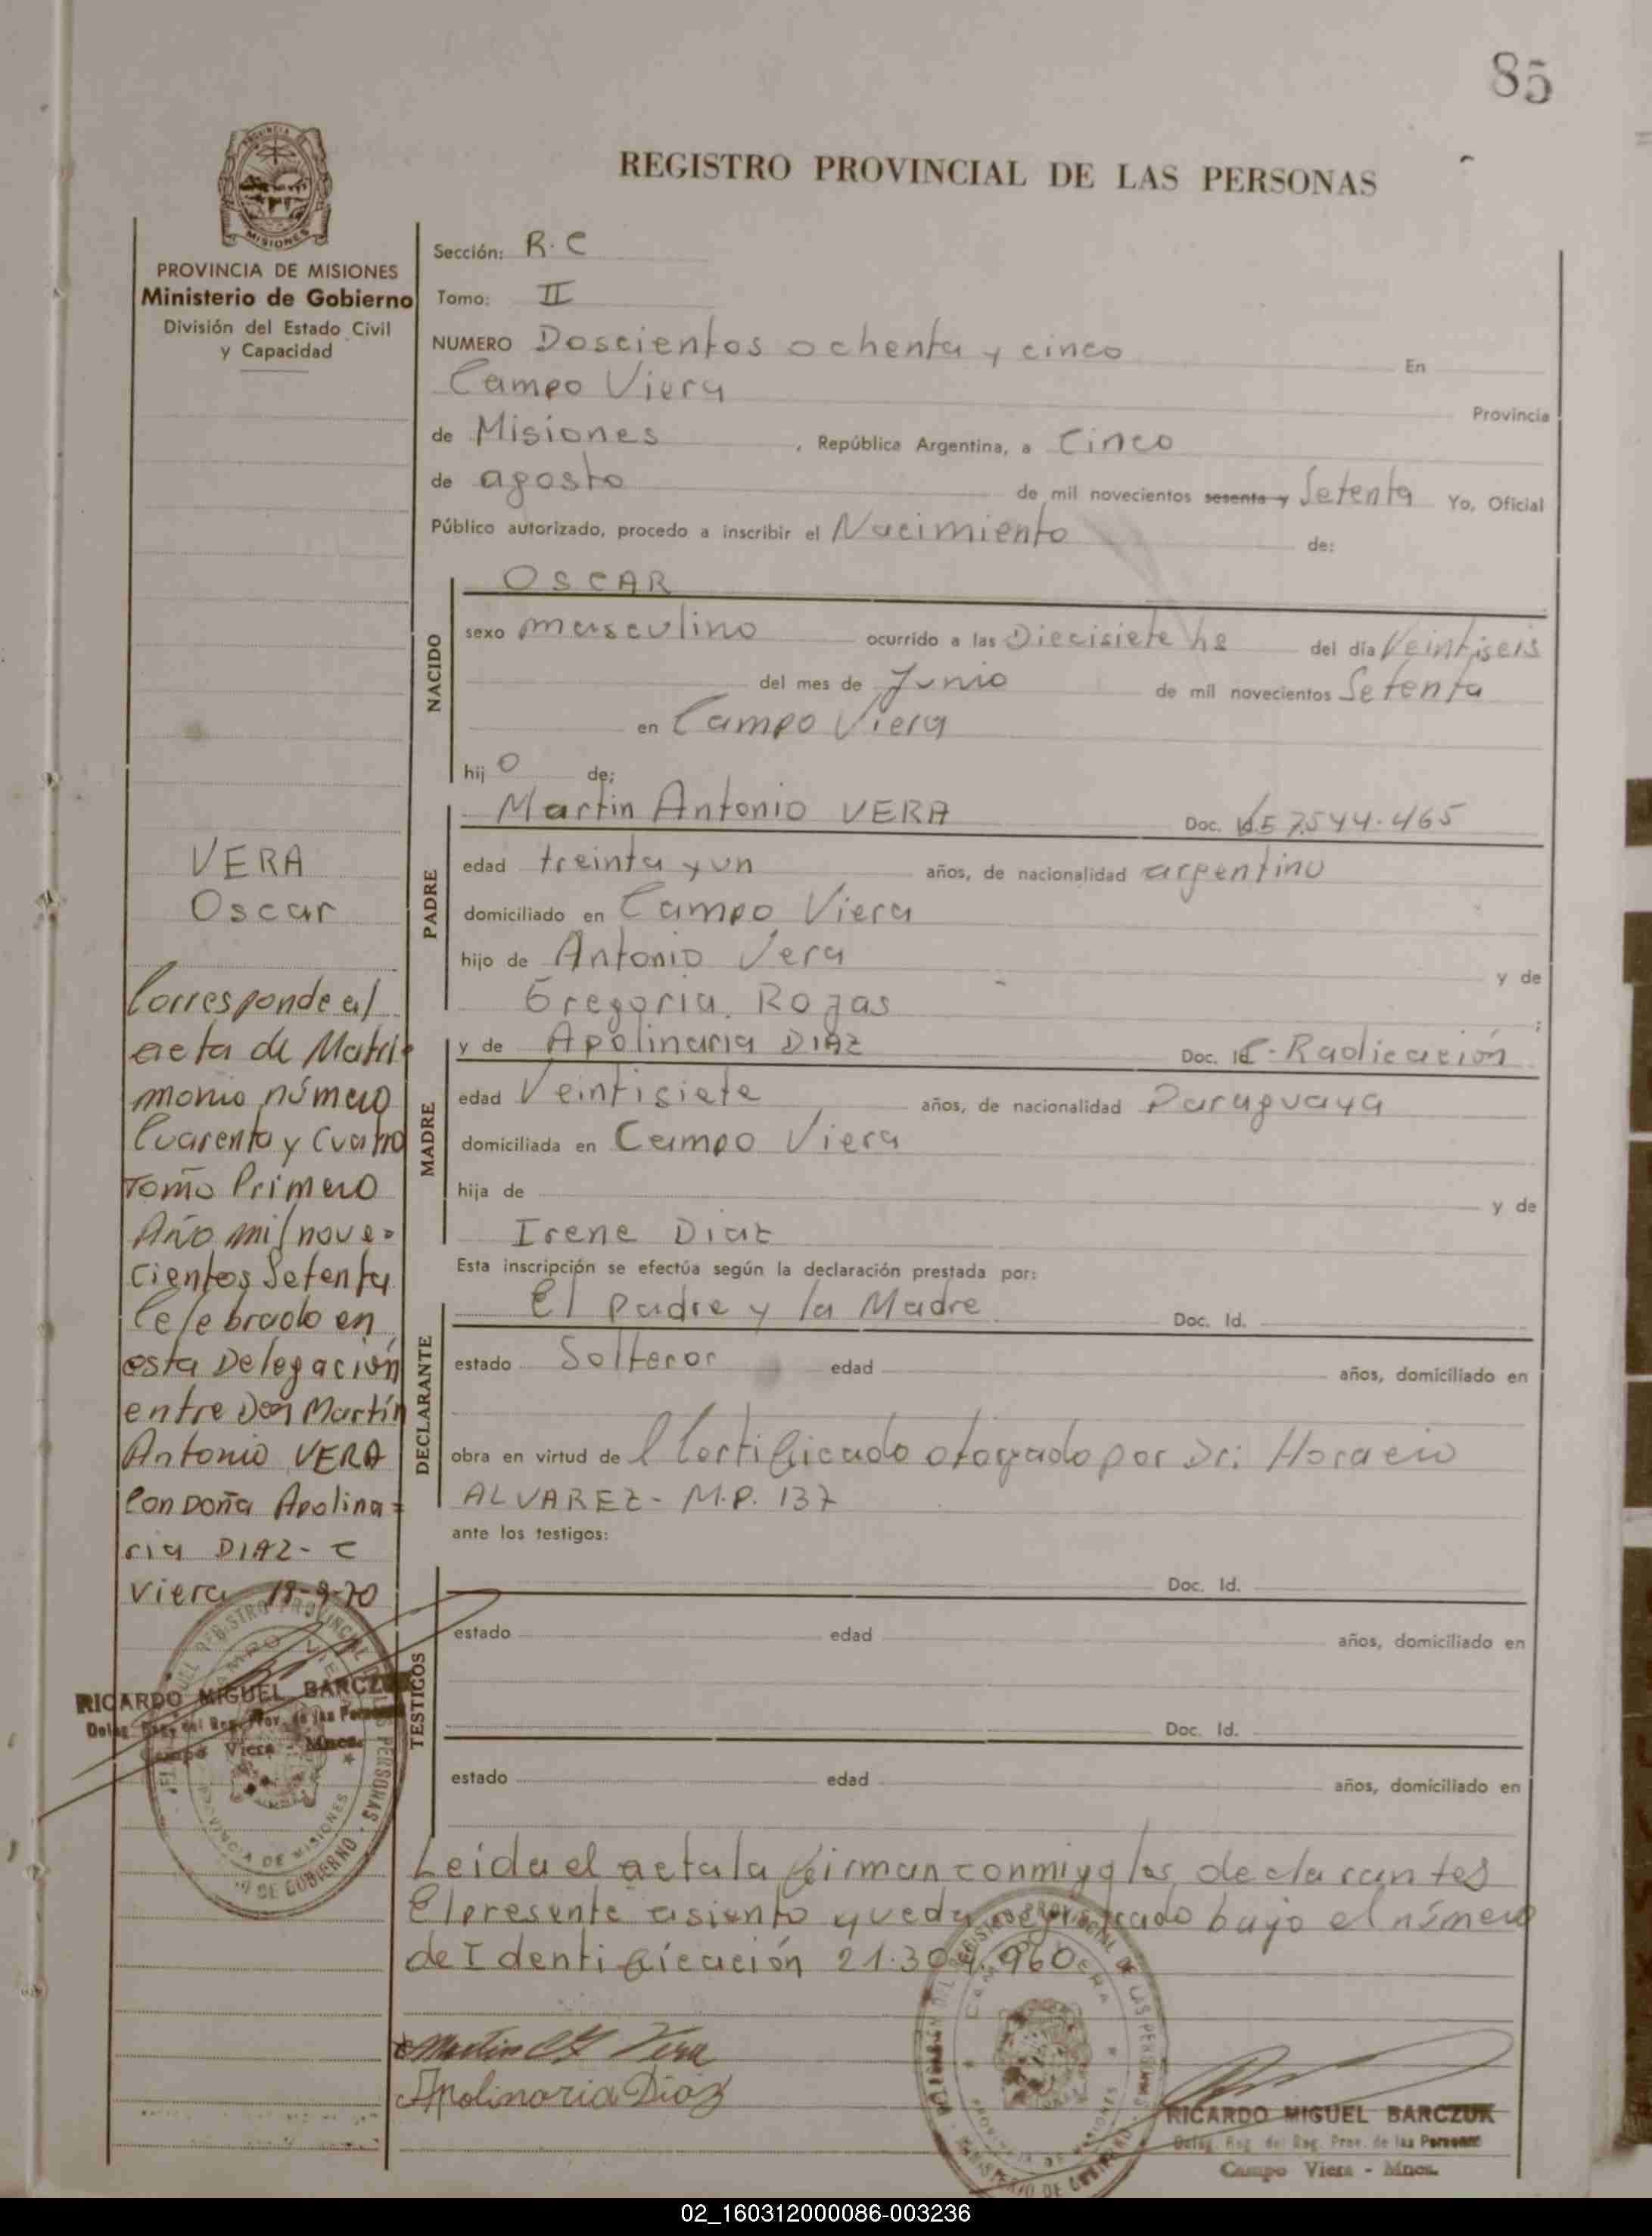 85
REGISTRO PROVINCIAL DE LAS PERSONAS
MISIONES
PROVINCIA DE MISIONES
Ministerio de Gobierno
División del Estado Civil
y Capacidad
Sección: R.C
Tomo: II
NUMERO Doscientos ochenta y cinco En
Campo Viera Provincia
de Misiones, República Argentina, a Cinco
de agosto de mil novecientos sesenta y Setenta Yo, Oficial
Público autorizado, procedo a inscribir el Nacimiento de:
NACIDO
OSCAR
sexo masculino ocurrido a las Diecisiete hs del día Veintiseis
del mes de Junio de mil novecientos Setenta
en Campo Viera
hijo de:
PADRE
Martin Antonio VERA Doc. 7.544.465
edad treinta y un años, de nacionalidad argentino
domiciliado en Campo Viera
hijo de Antonio Vera y de
Gregoria Rojas ;
MADRE
y de Apolinaria DIAZ Doc. Id. C-Radicación
edad Veintisiete años, de nacionalidad Paraguaya
domiciliada en Campo Viera
hija de y de
Irene Diaz
Esta inscripción se efectúa según la declaración prestada por:
DECLARANTE
El padre y la Madre Doc. Id.
estado Solteros edad años, domiciliado en
obra en virtud de l Certificado otorgado por Dr: Horacio
ALVAREZ - M.P. 137
ante los testigos:
TESTIGOS
Doc. Id.
estado edad años, domiciliado en
Doc. Id.
estado edad años, domiciliado en
Leida el acta la firman conmigo los declarantes
El presente asiento queda registrado bajo el número
de Identificación 21.304.960
Martin A Vera
Apolinaria Diaz
RICARDO MIGUEL BARCZUK
Deleg. Reg. del Reg. Prov. de las Personas
Campo Viera - Mnes.
VERA
Oscar
Corresponde al
acta de Matri-
monio número
Cuarenta y Cuatro
Tomo Primero
Año mil nove-
cientos Setenta
Celebrado en
esta Delegación
entre Don Martín
Antonio VERA
Con Doña Apolina-
ria DIAZ - C
Viera 19-9-70
RICARDO MIGUEL BARCZUK
Deleg. Reg. del Reg. Prov. de las Personas
Campo Viera - Mnes.
02_160312000086-003236